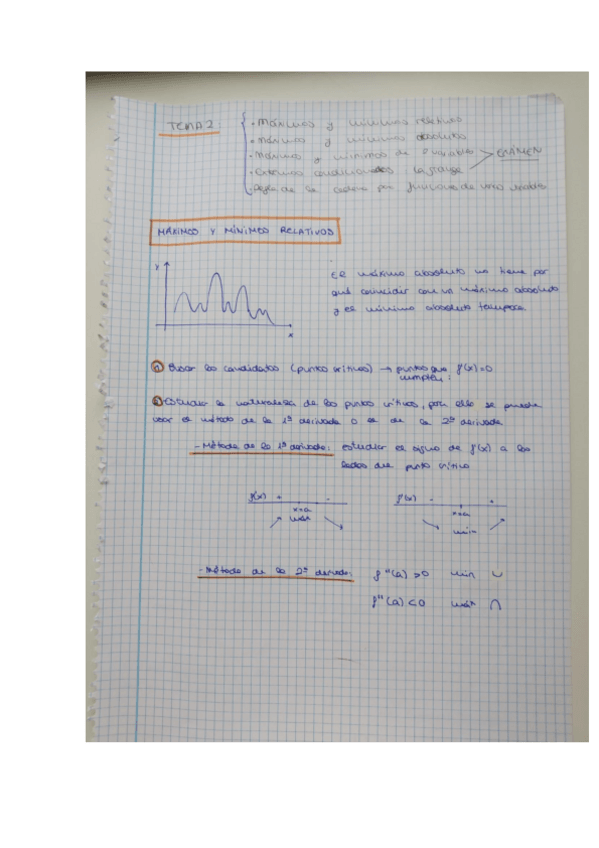 TEMA 2:
· Máximos y mínimos relativos
· Máximos y mínimos absolutos
· Máximos y mínimos de 2 variables
EXÁMEN
· Extremos condicionados Lagrange
· Regla de la cadena por funciones de varias variables
MÁXIMOS Y MÍNIMOS RELATIVOS
y
x
El máximo absoluto no tiene por
qué coincidir con un máximo absoluto
y el mínimo absoluto tampoco.
① Buscar los candidatos (puntos críticos) → puntos que f'(x)=0
cumplen:
② Estudiar la naturaleza de los puntos críticos, para ello se puede
usar el método de la 1ª derivada o el de la 2ª derivada
- Método de la 1ª derivada: estudiar el signo de f'(x) a los
lados del punto crítico
f'(x) + -
x=a
máx
f'(x) - +
x=a
mín
- Método de la 2ª derivada: f''(a) >0 mín ∪
f''(a) <0 máx ∩